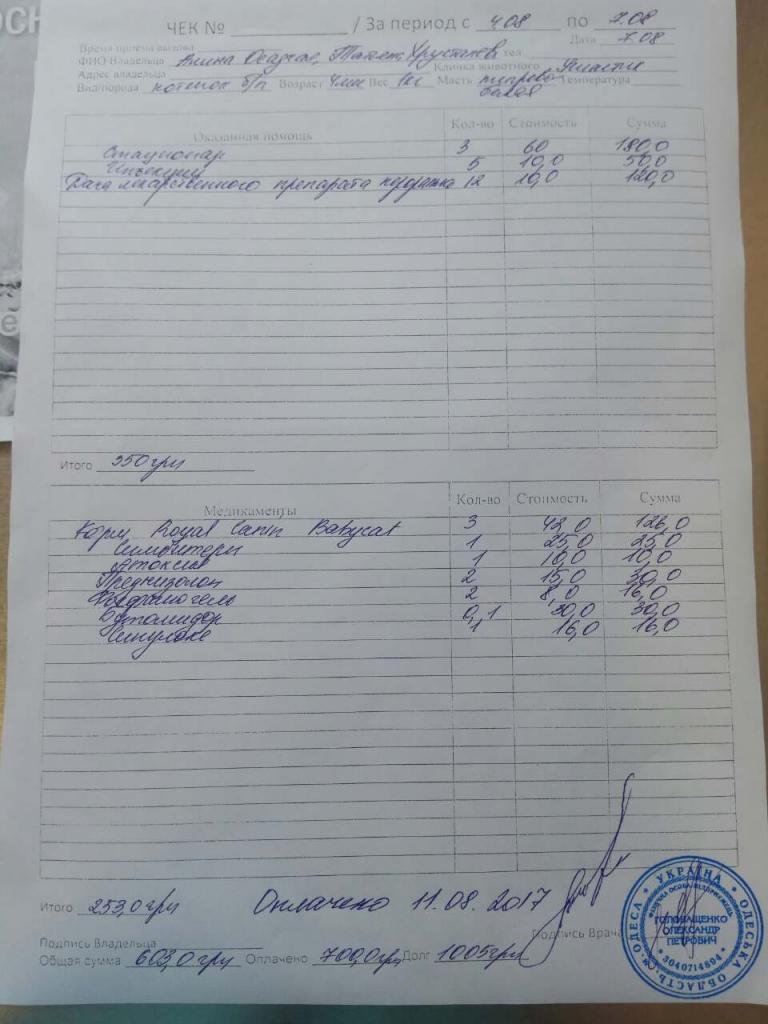 ОСН
ЧЕК № / За период с 4.08 по 7.08
Время приема вызова Дата 7.08
ФИО Владельца Алина тел
Адрес владельца Кличка животного
Вид/порода котенок б/п Возраст 4мес Вес 1кг Масть тигрово Температура
белая
Оказанная помощь Кол-во Стоимость Сумма
Стационар 3 60 180,0
Инъекции 5 10,0 50,0
Дача лекарственного препарата перорально 12 10,0 120,0
Итого 350грн
Медикаменты Кол-во Стоимость Сумма
Корм Royal Canin Babycat 3 42,0 126,0
1 25,0 25,0
1 10,0 10,0
Преднизолон 2 15,0 30,0
Фосфалюгель 2 8,0 16,0
0,1 30,0
1 16,0 16,0
Итого 253,0грн Оплачено 11.08.2017
Подпись Владельца Подпись Врача
Общая сумма 603,0грн Оплачено 700,0грн Долг 1005грн
УКРАЇНА * ОДЕСЬКА ОБЛАСТЬ * М.ОДЕСА
ФІЗИЧНА ОСОБА-ПІДПРИЄМЕЦЬ
ГОЛОВАЩЕНКО
ОЛЕКСАНДР
ПЕТРОВИЧ
* 3040714694 *